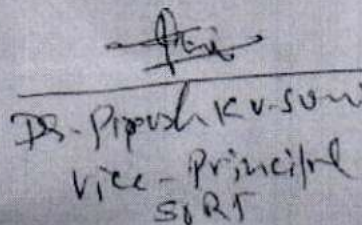 Dr. Piyush Ku. Soni
Vice-Principal
SIRT